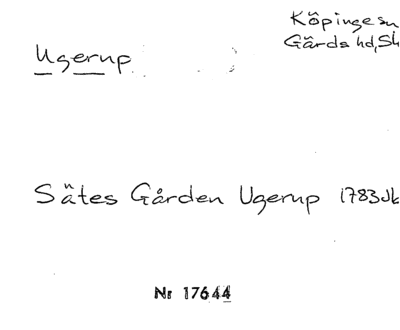 Köpinge sn
Gärds hd, Sk
Ugerup
Sätes Gården Ugerup 1783 Jb
Nr 17644